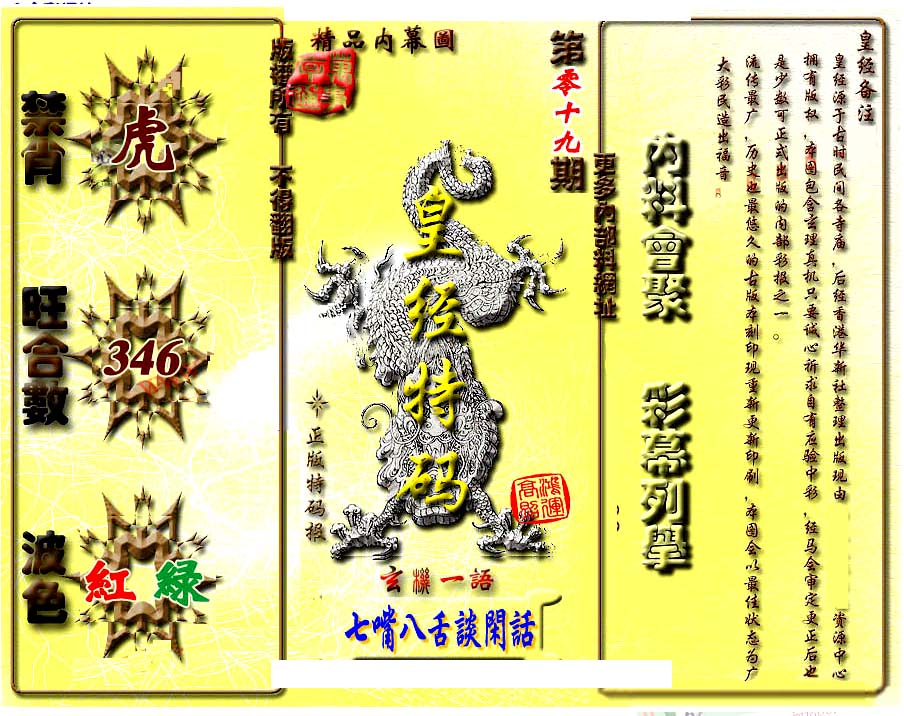 精品内幕圖
第零十九期
版權所有 不得翻版
更多內部料網址
禁肖
虎
旺合數
346
波色
紅 緑
皇经特码
正版特码报
鴻運高照
玄機一語
七嘴八舌談閑話
内料會聚
彩幕列舉
皇经备注
皇经源于古时民间各寺庙，后经香港华新社整理出版现由 资源中心
拥有版权，本图包含玄理真机只要诚心祈求自有应验中彩，经马会审定更正后也
是少数可正式出版的内部彩报之一。
流传最广，历史也最悠久的古版本刻印现重新更新印刷，本图会以最佳状态为广
大彩民造出福音。